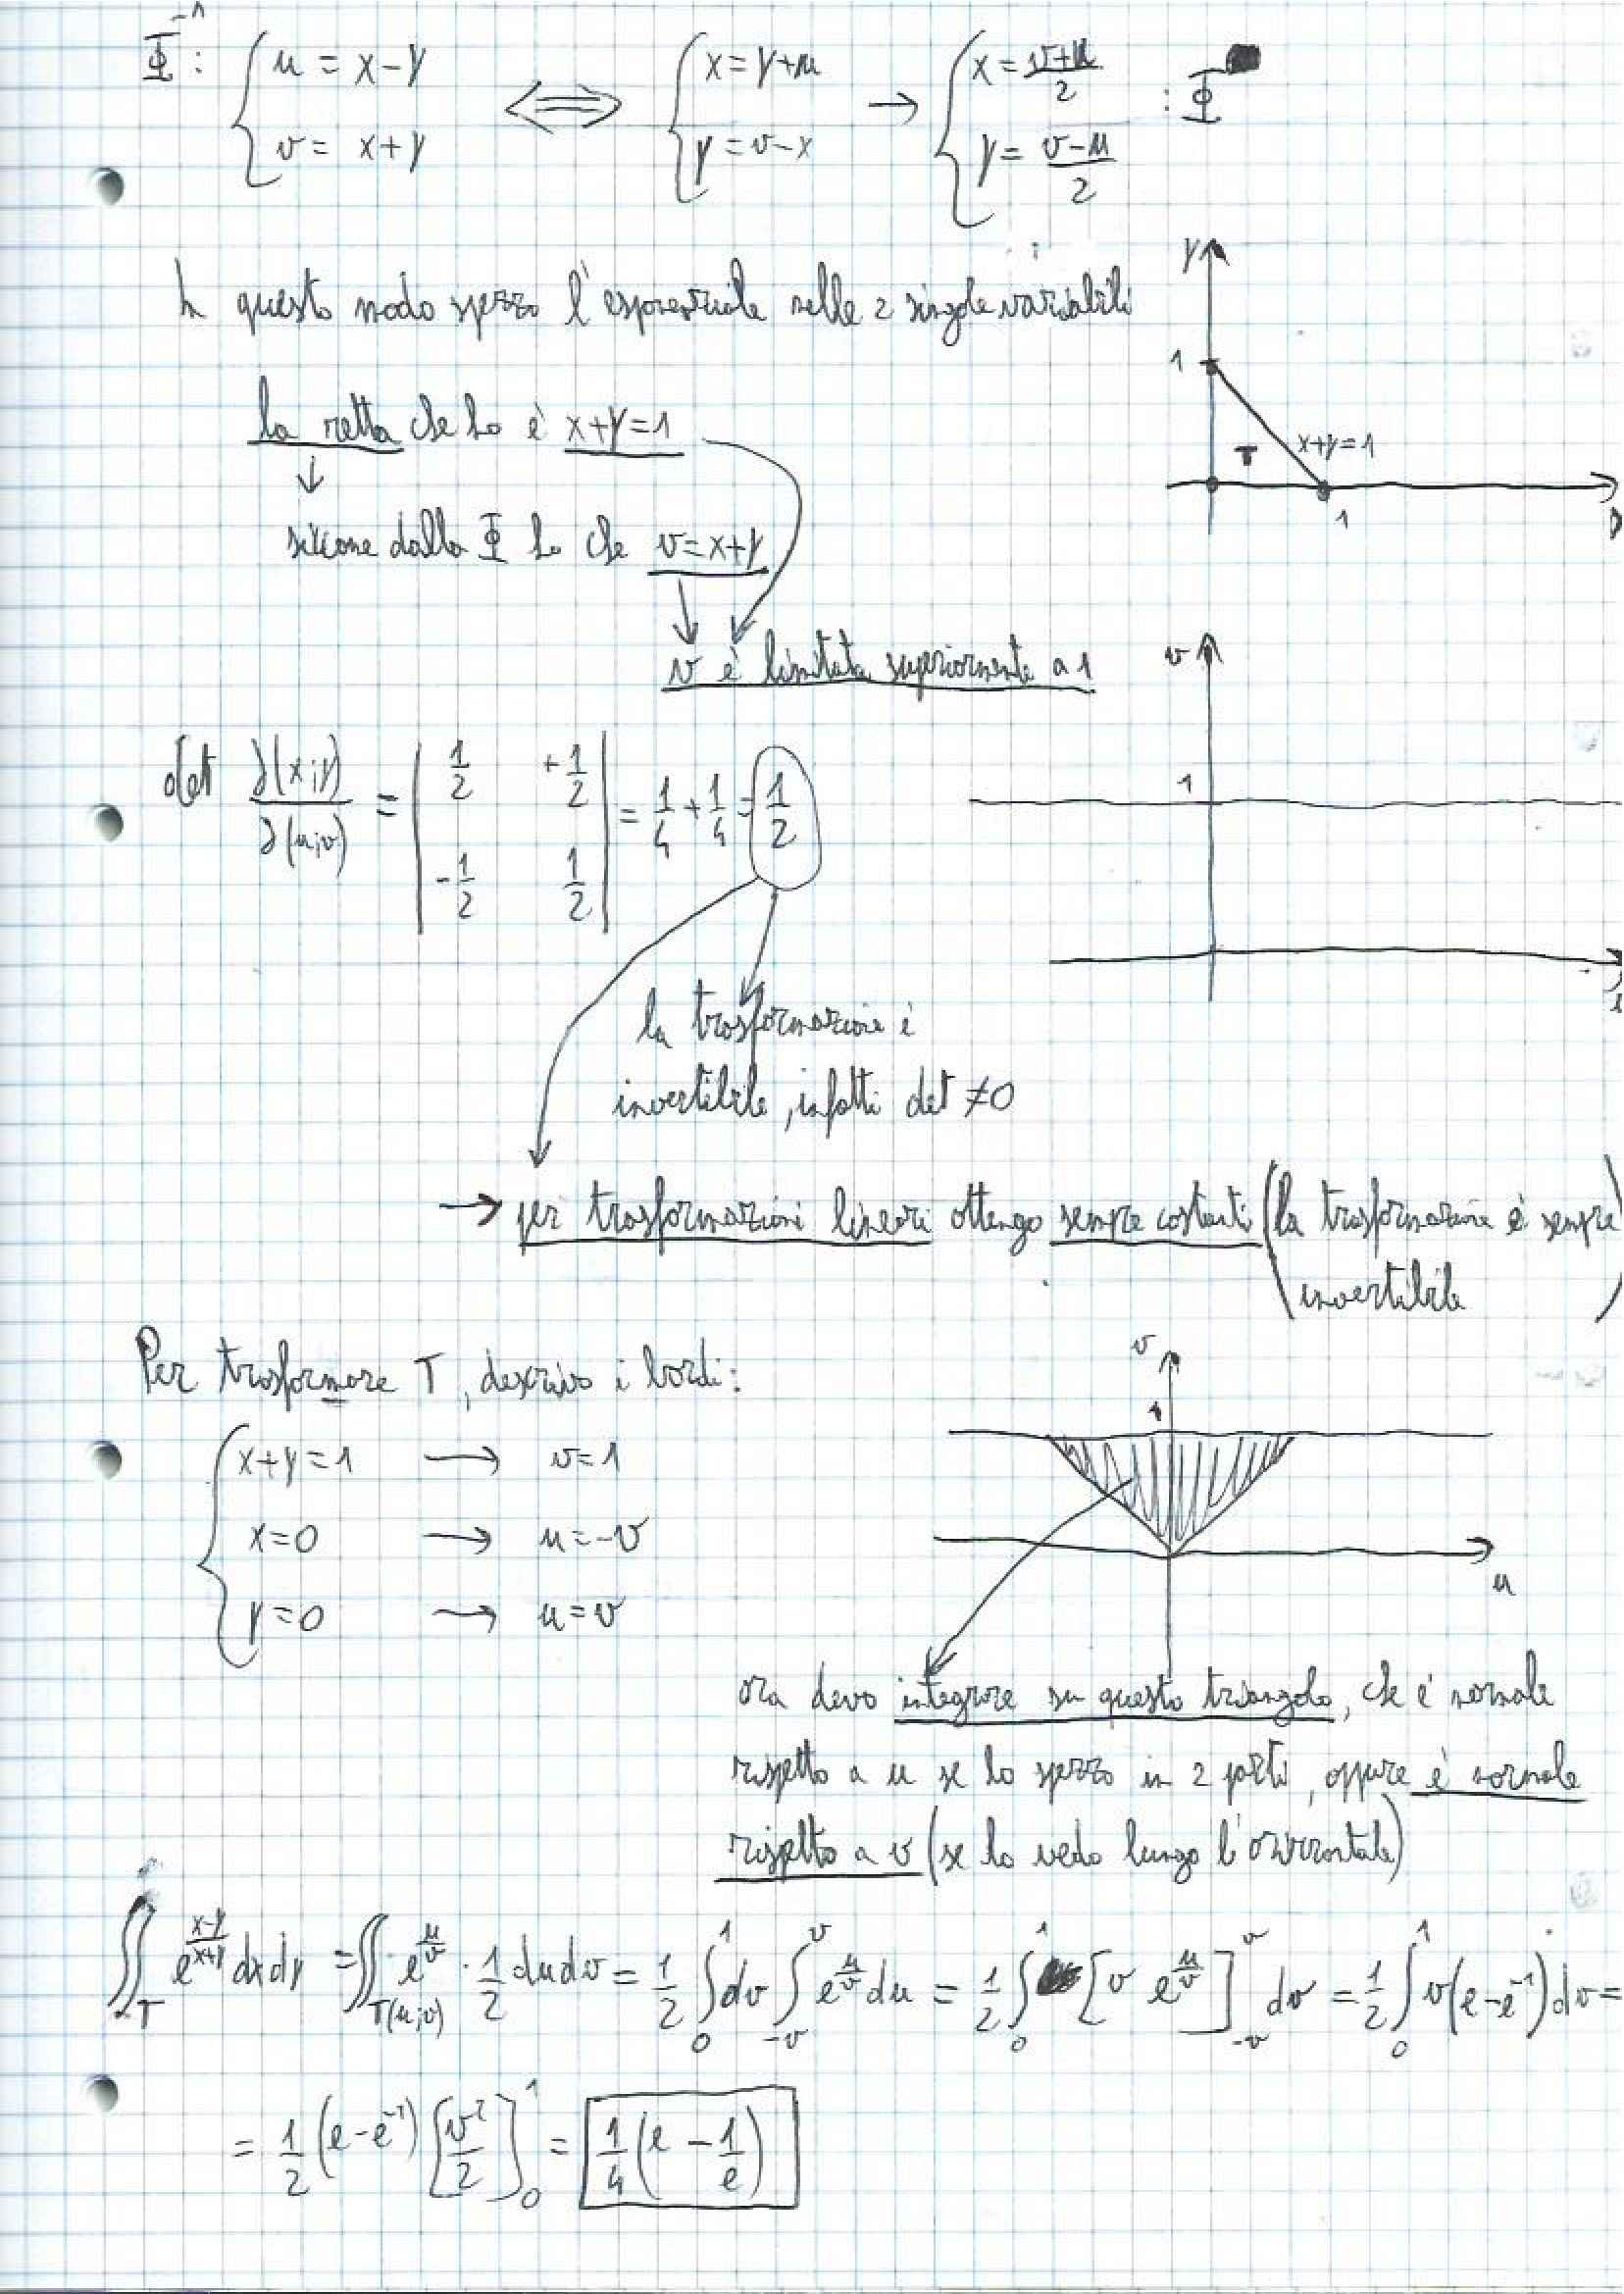 Φ⁻¹: { u = x-y ⟺ { x = y+u → { x = (v+u)/2 : Φ
v = x+y y = v-x y = (v-u)/2
In questo modo spezzo l'esponenziale nelle 2 singole variabili
y
1
T
x+y=1
1
la retta che ho è x+y=1
↓
siccome dalla Φ ho che v=x+y
v è limitata superiormente a 1
v
1
det ∂(x;y)/∂(u;v) = | 1/2 +1/2 | = 1/4 + 1/4 = 1/2
| -1/2 1/2 |
la trasformazione è
invertibile, infatti det ≠0
→ per trasformazioni lineari ottengo sempre costanti (la trasformazione è sempre
invertibile)
Per trasformare T, descrivo i bordi:
{ x+y=1 → v=1
x=0 → u=-v
y=0 → u=v
v
1
u
ora devo integrare su questo triangolo, che è normale
rispetto a u se lo spezzo in 2 parti, oppure è normale
rispetto a v (se lo vedo lungo l'orizzontale)
∬_T e^((x-y)/(x+y)) dxdy = ∬_T(u;v) e^(u/v) · 1/2 dudv = 1/2 ∫₀¹ dv ∫₋ᵥᵛ e^(u/v) du = 1/2 ∫₀¹ [v e^(u/v)]₋ᵥᵛ dv = 1/2 ∫₀¹ v(e-e⁻¹) dv =
= 1/2 (e-e⁻¹) [v²/2]₀¹ = 1/4 (e - 1/e)